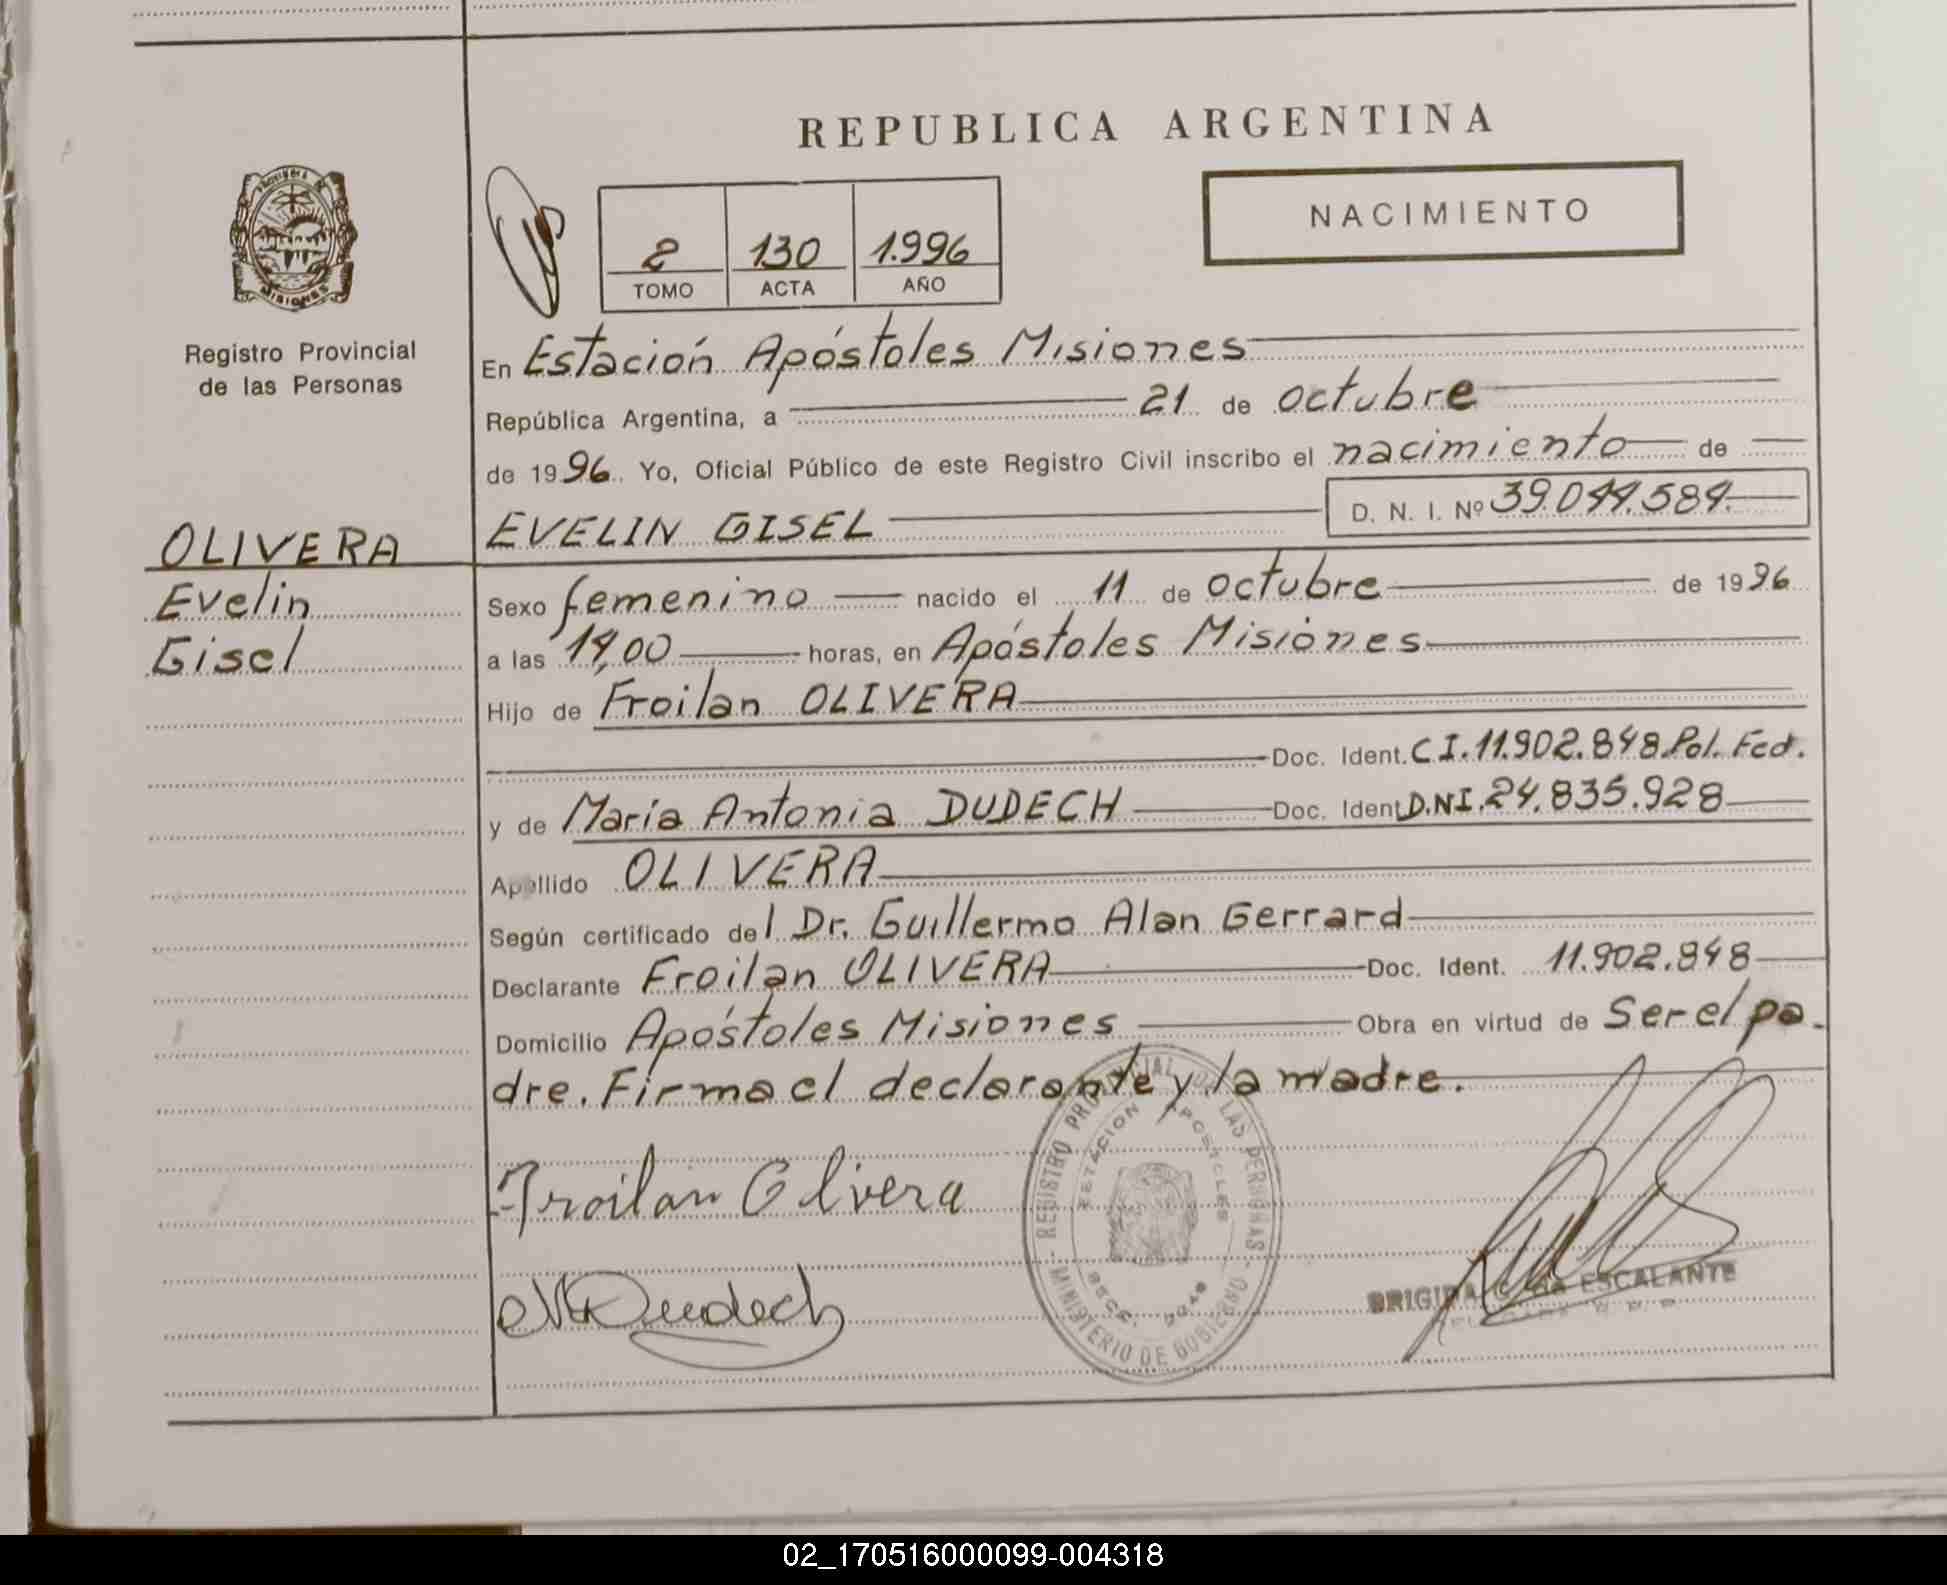 REPUBLICA ARGENTINA
NACIMIENTO
2 130 1.996
TOMO ACTA AÑO
MISIONES
Registro Provincial
de las Personas
OLIVERA
Evelin
Gisel
En Estación Apóstoles Misiones
República Argentina, a 21 de octubre
de 1996. Yo, Oficial Público de este Registro Civil inscribo el nacimiento de
EVELIN GISEL D. N. I. Nº 39.044.584.
Sexo femenino nacido el 11 de octubre de 1996
a las 14,00 horas, en Apóstoles Misiones
Hijo de Froilan OLIVERA
Doc. Ident. C I. 11.902.848 Pol. Fed.
y de María Antonia DUDECH Doc. Ident D.N.I. 24.835.928
Apellido OLIVERA
Según certificado del Dr. Guillermo Alan Gerrard
Declarante Froilan OLIVERA Doc. Ident. 11.902.848
Domicilio Apóstoles Misiones Obra en virtud de Ser el pa-
dre. Firma el declarante y la madre.
Froilan Olivera
Dudech
REGISTRO PROVINCIAL DE LAS PERSONAS
ESTACION APOSTOLES
MINISTERIO DE GOBIERNO
BRIGIDA ESCALANTE
02_170516000099-004318